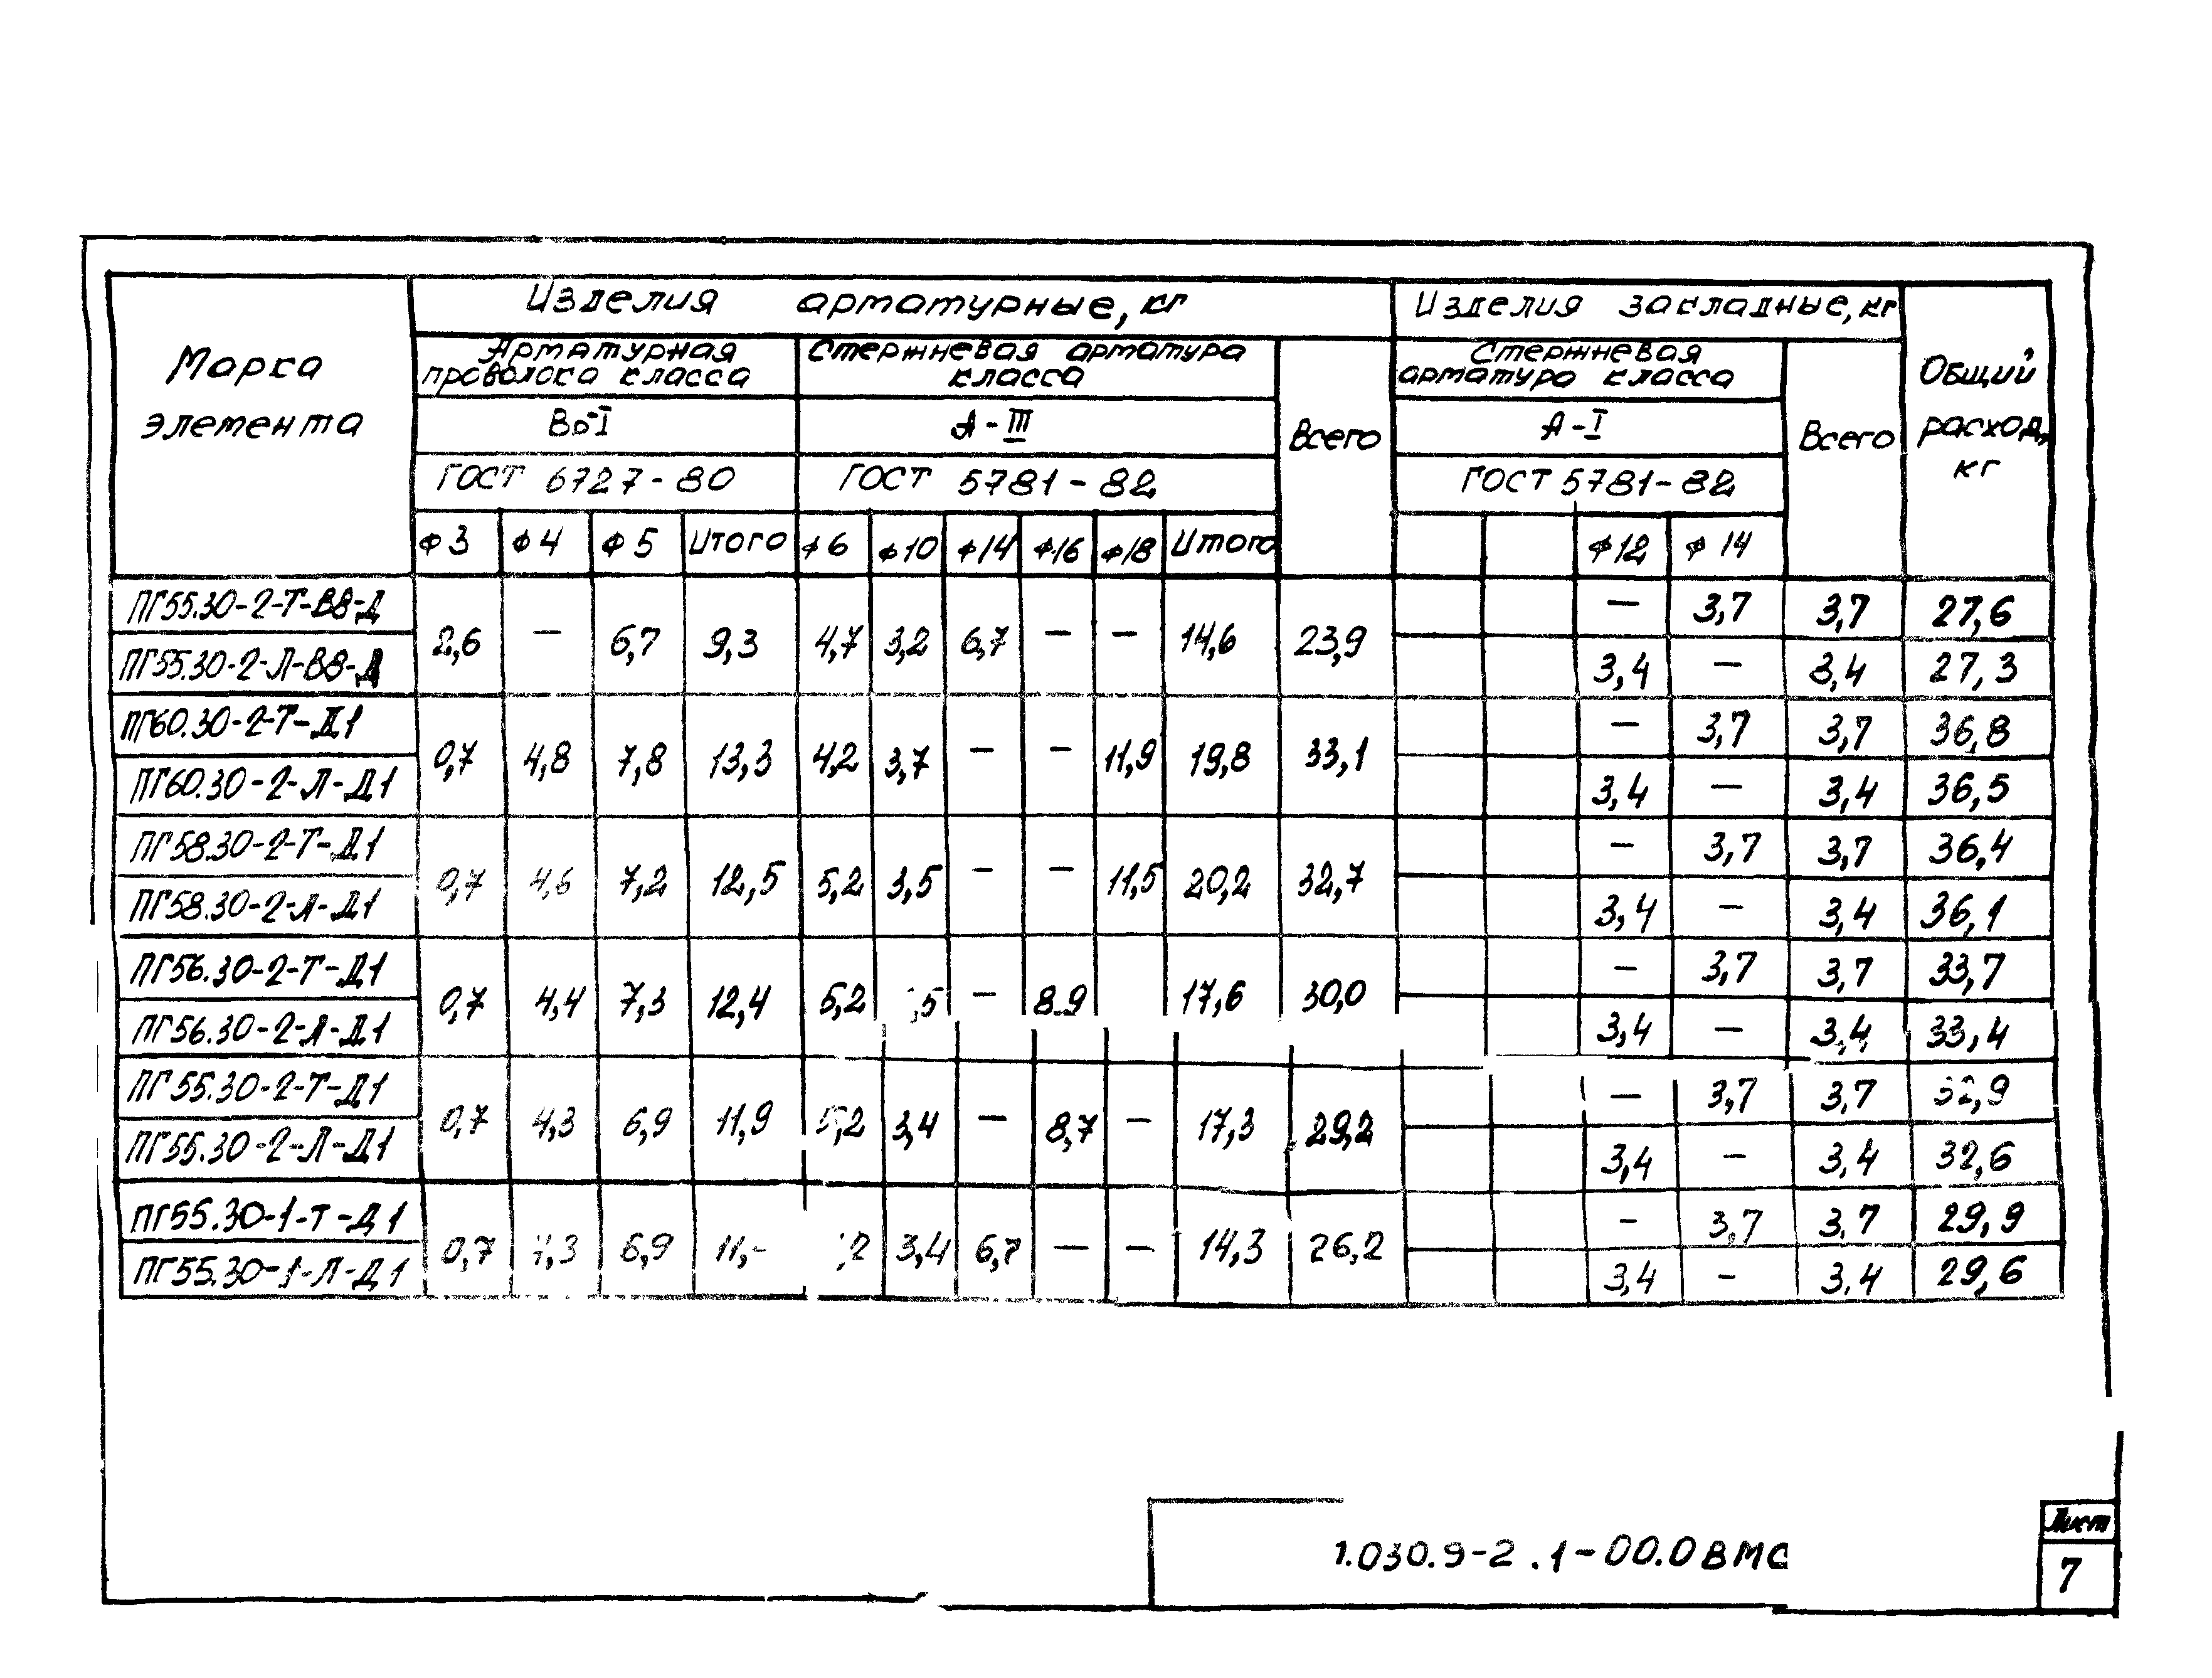 Марка элемента
Изделия арматурные, кг
Изделия закладные, кг
Общий расход, кг
Арматурная проволока класса
Стержневая арматура класса
Всего
Стержневая арматура класса
Всего
Вр-I
А-III
А-I
ГОСТ 6727-80
ГОСТ 5781-82
ГОСТ 5781-82
ф3 ф4 ф5 Итого ф6 ф10 ф14 ф16 ф18 Итого ф12 ф14
ПГ55.30-2-Т-В8-Д
2,6 — 6,7 9,3 4,7 3,2 6,7 — — 14,6 23,9
— 3,7 3,7 27,6
ПГ55.30-2-Л-В8-Д
3,4 — 3,4 27,3
ПГ60.30-2-Т-Д1
0,7 4,8 7,8 13,3 4,2 3,7 — — 11,9 19,8 33,1
— 3,7 3,7 36,8
ПГ60.30-2-Л-Д1
3,4 — 3,4 36,5
ПГ58.30-2-Т-Д1
0,7 4,6 7,2 12,5 5,2 3,5 — — 11,5 20,2 32,7
— 3,7 3,7 36,4
ПГ58.30-2-Л-Д1
3,4 — 3,4 36,1
ПГ56.30-2-Т-Д1
0,7 4,4 7,3 12,4 5,2 — 8,9 17,6 30,0
— 3,7 3,7 33,7
ПГ56.30-2-Л-Д1
3,4 — 3,4 33,4
ПГ55.30-2-Т-Д1
0,7 4,3 6,9 11,9 5,2 3,4 — 8,7 — 17,3 29,2
— 3,7 3,7 32,9
ПГ55.30-2-Л-Д1
3,4 — 3,4 32,6
ПГ55.30-1-Т-Д1
0,7 6,9 3,4 6,7 — — 14,3 26,2
— 3,7 3,7 29,9
ПГ55.30-1-Л-Д1
3,4 — 3,4 29,6
1.030.9-2.1-00.0ВМС
Лист
7